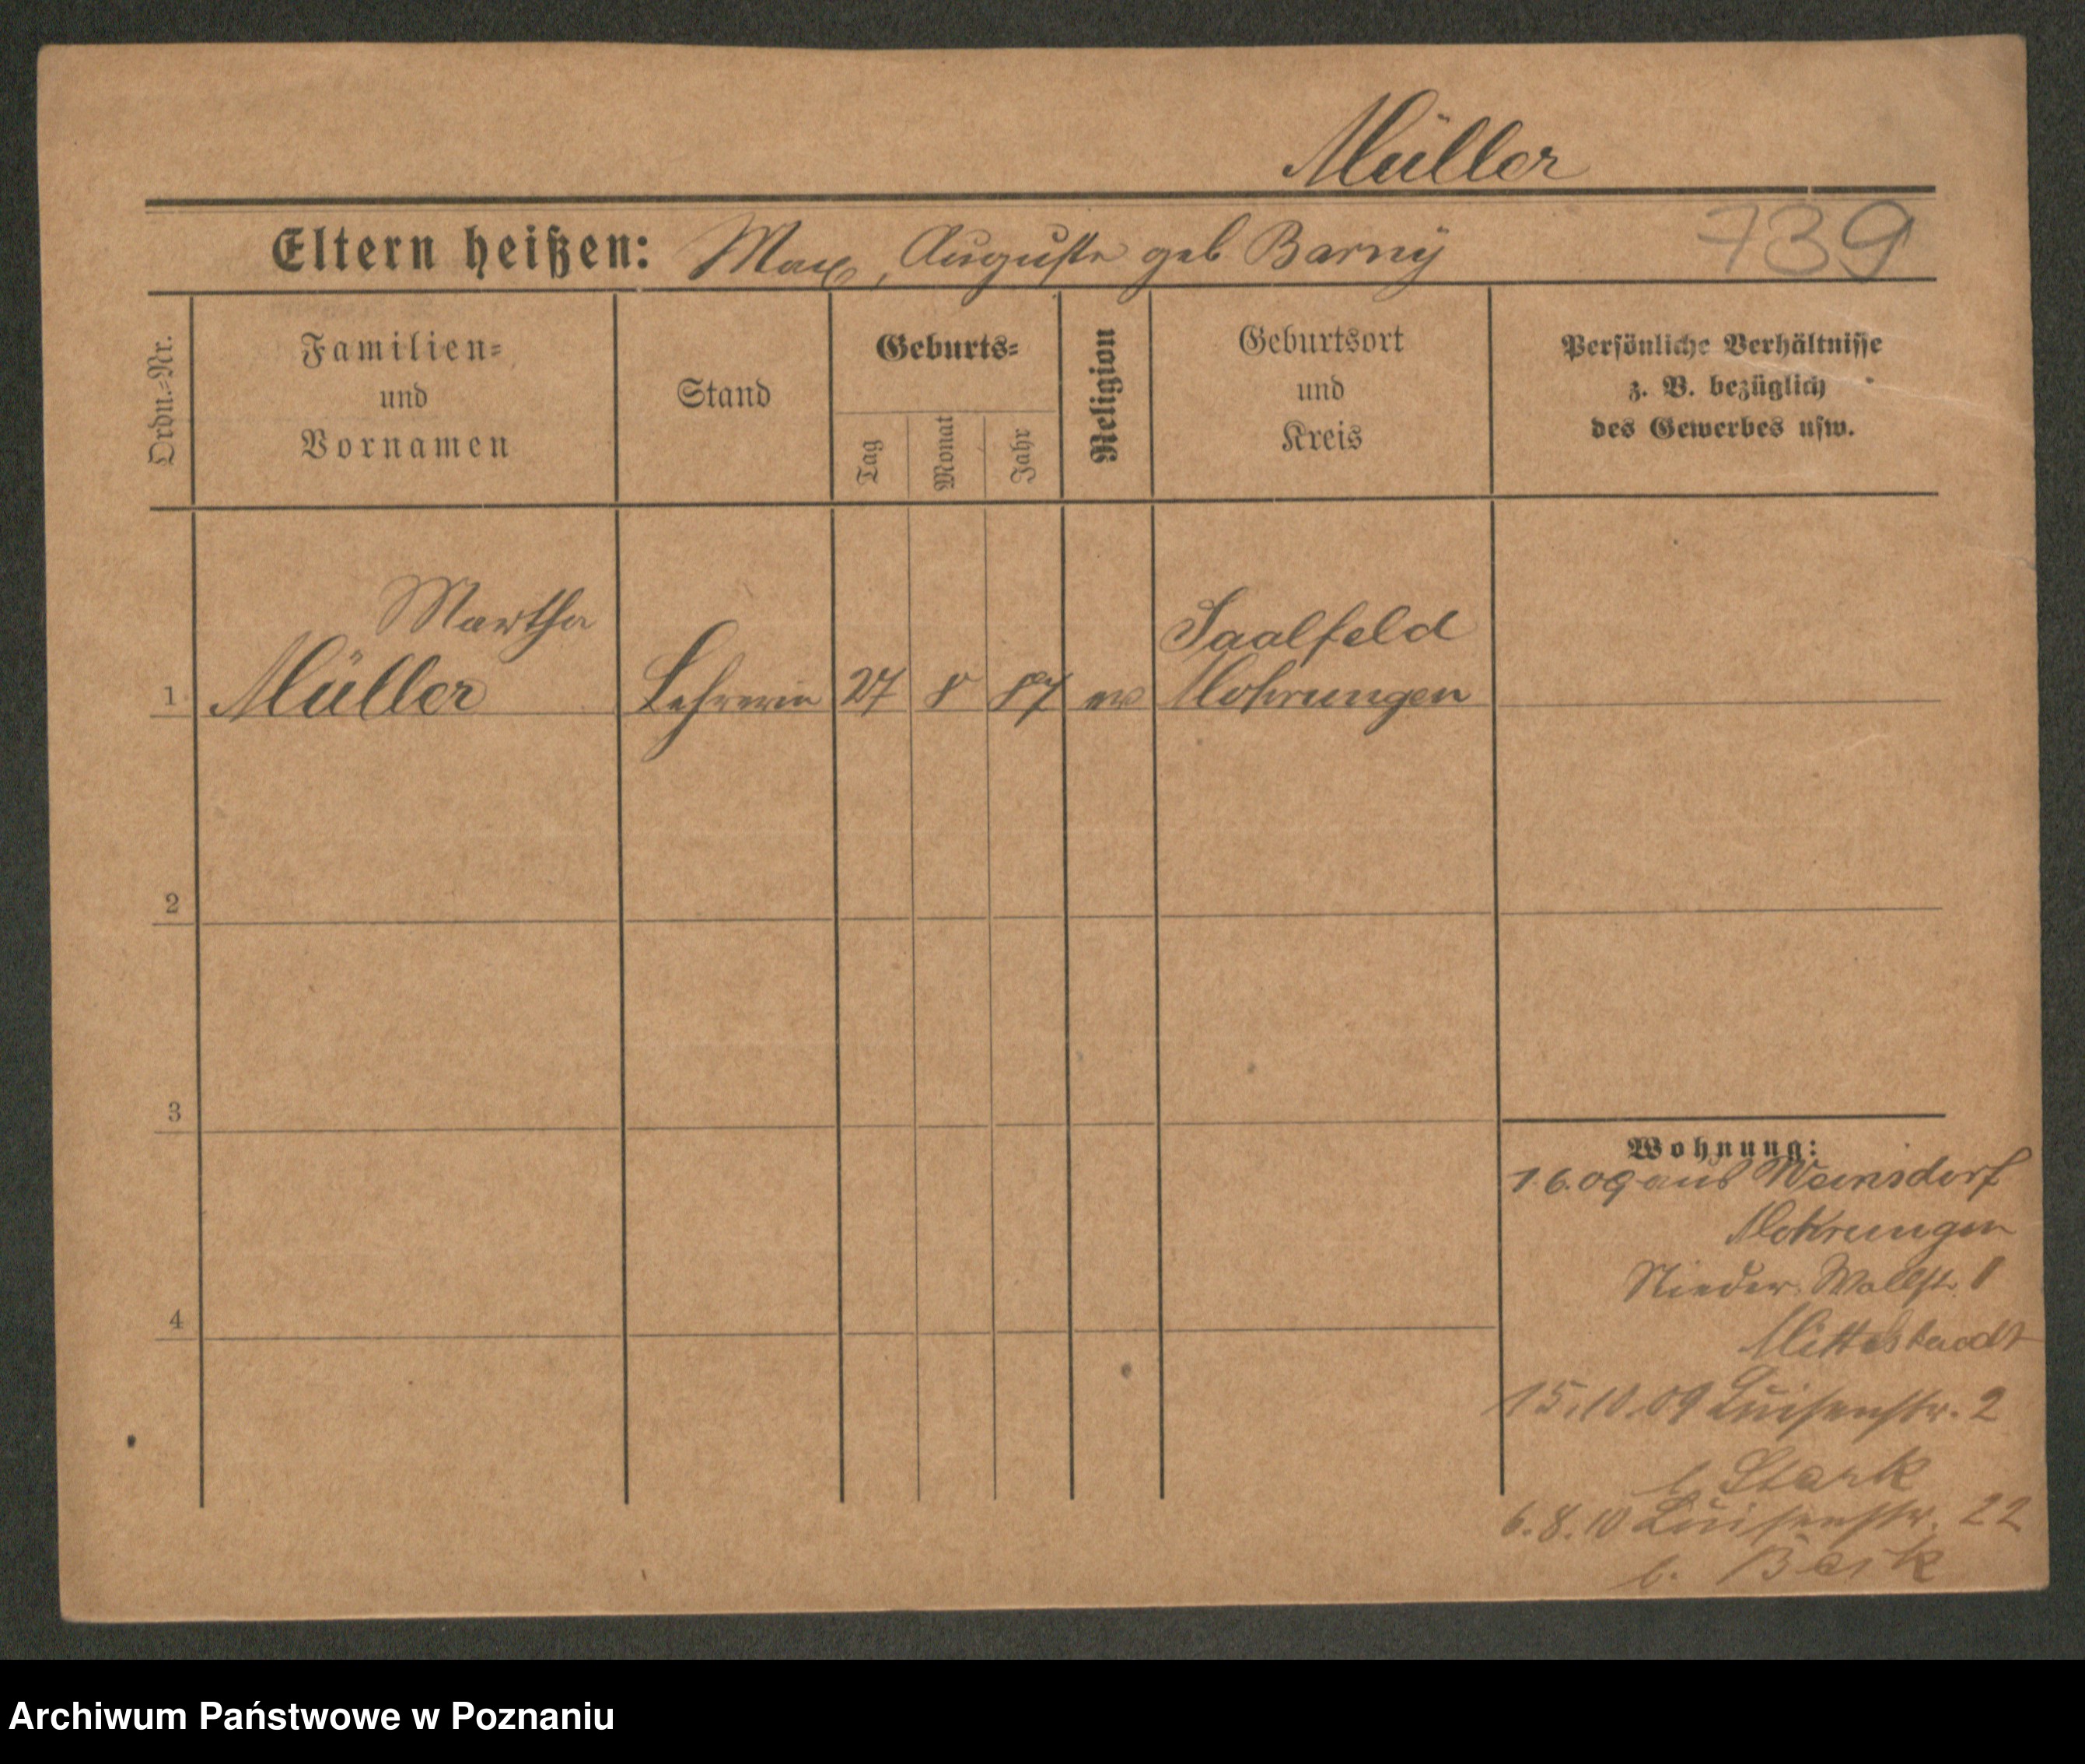 Müller
Eltern heißen: Max, Auguste geb Barny
739
Ordn.=Nr.
Familien=
und
Vornamen
Stand
Geburts=
Tag
Monat
Jahr
Religion
Geburtsort
und
Kreis
Persönliche Verhältnisse
z. B. bezüglich
des Gewerbes usw.
Martha
1 Müller Lehrerin 27 8 87 ev
Saalfeld
Mohrungen
2
3
4
Wohnung:
1 6. 09 aus Weinsdorf
Mohrungen
Nieder. Wallstr. 1
Mittelstaedt
15.10.09 Luisenstr. 2
b. Stark
6.8.10 Luisenstr. 22
b.
Archiwum Państwowe w Poznaniu